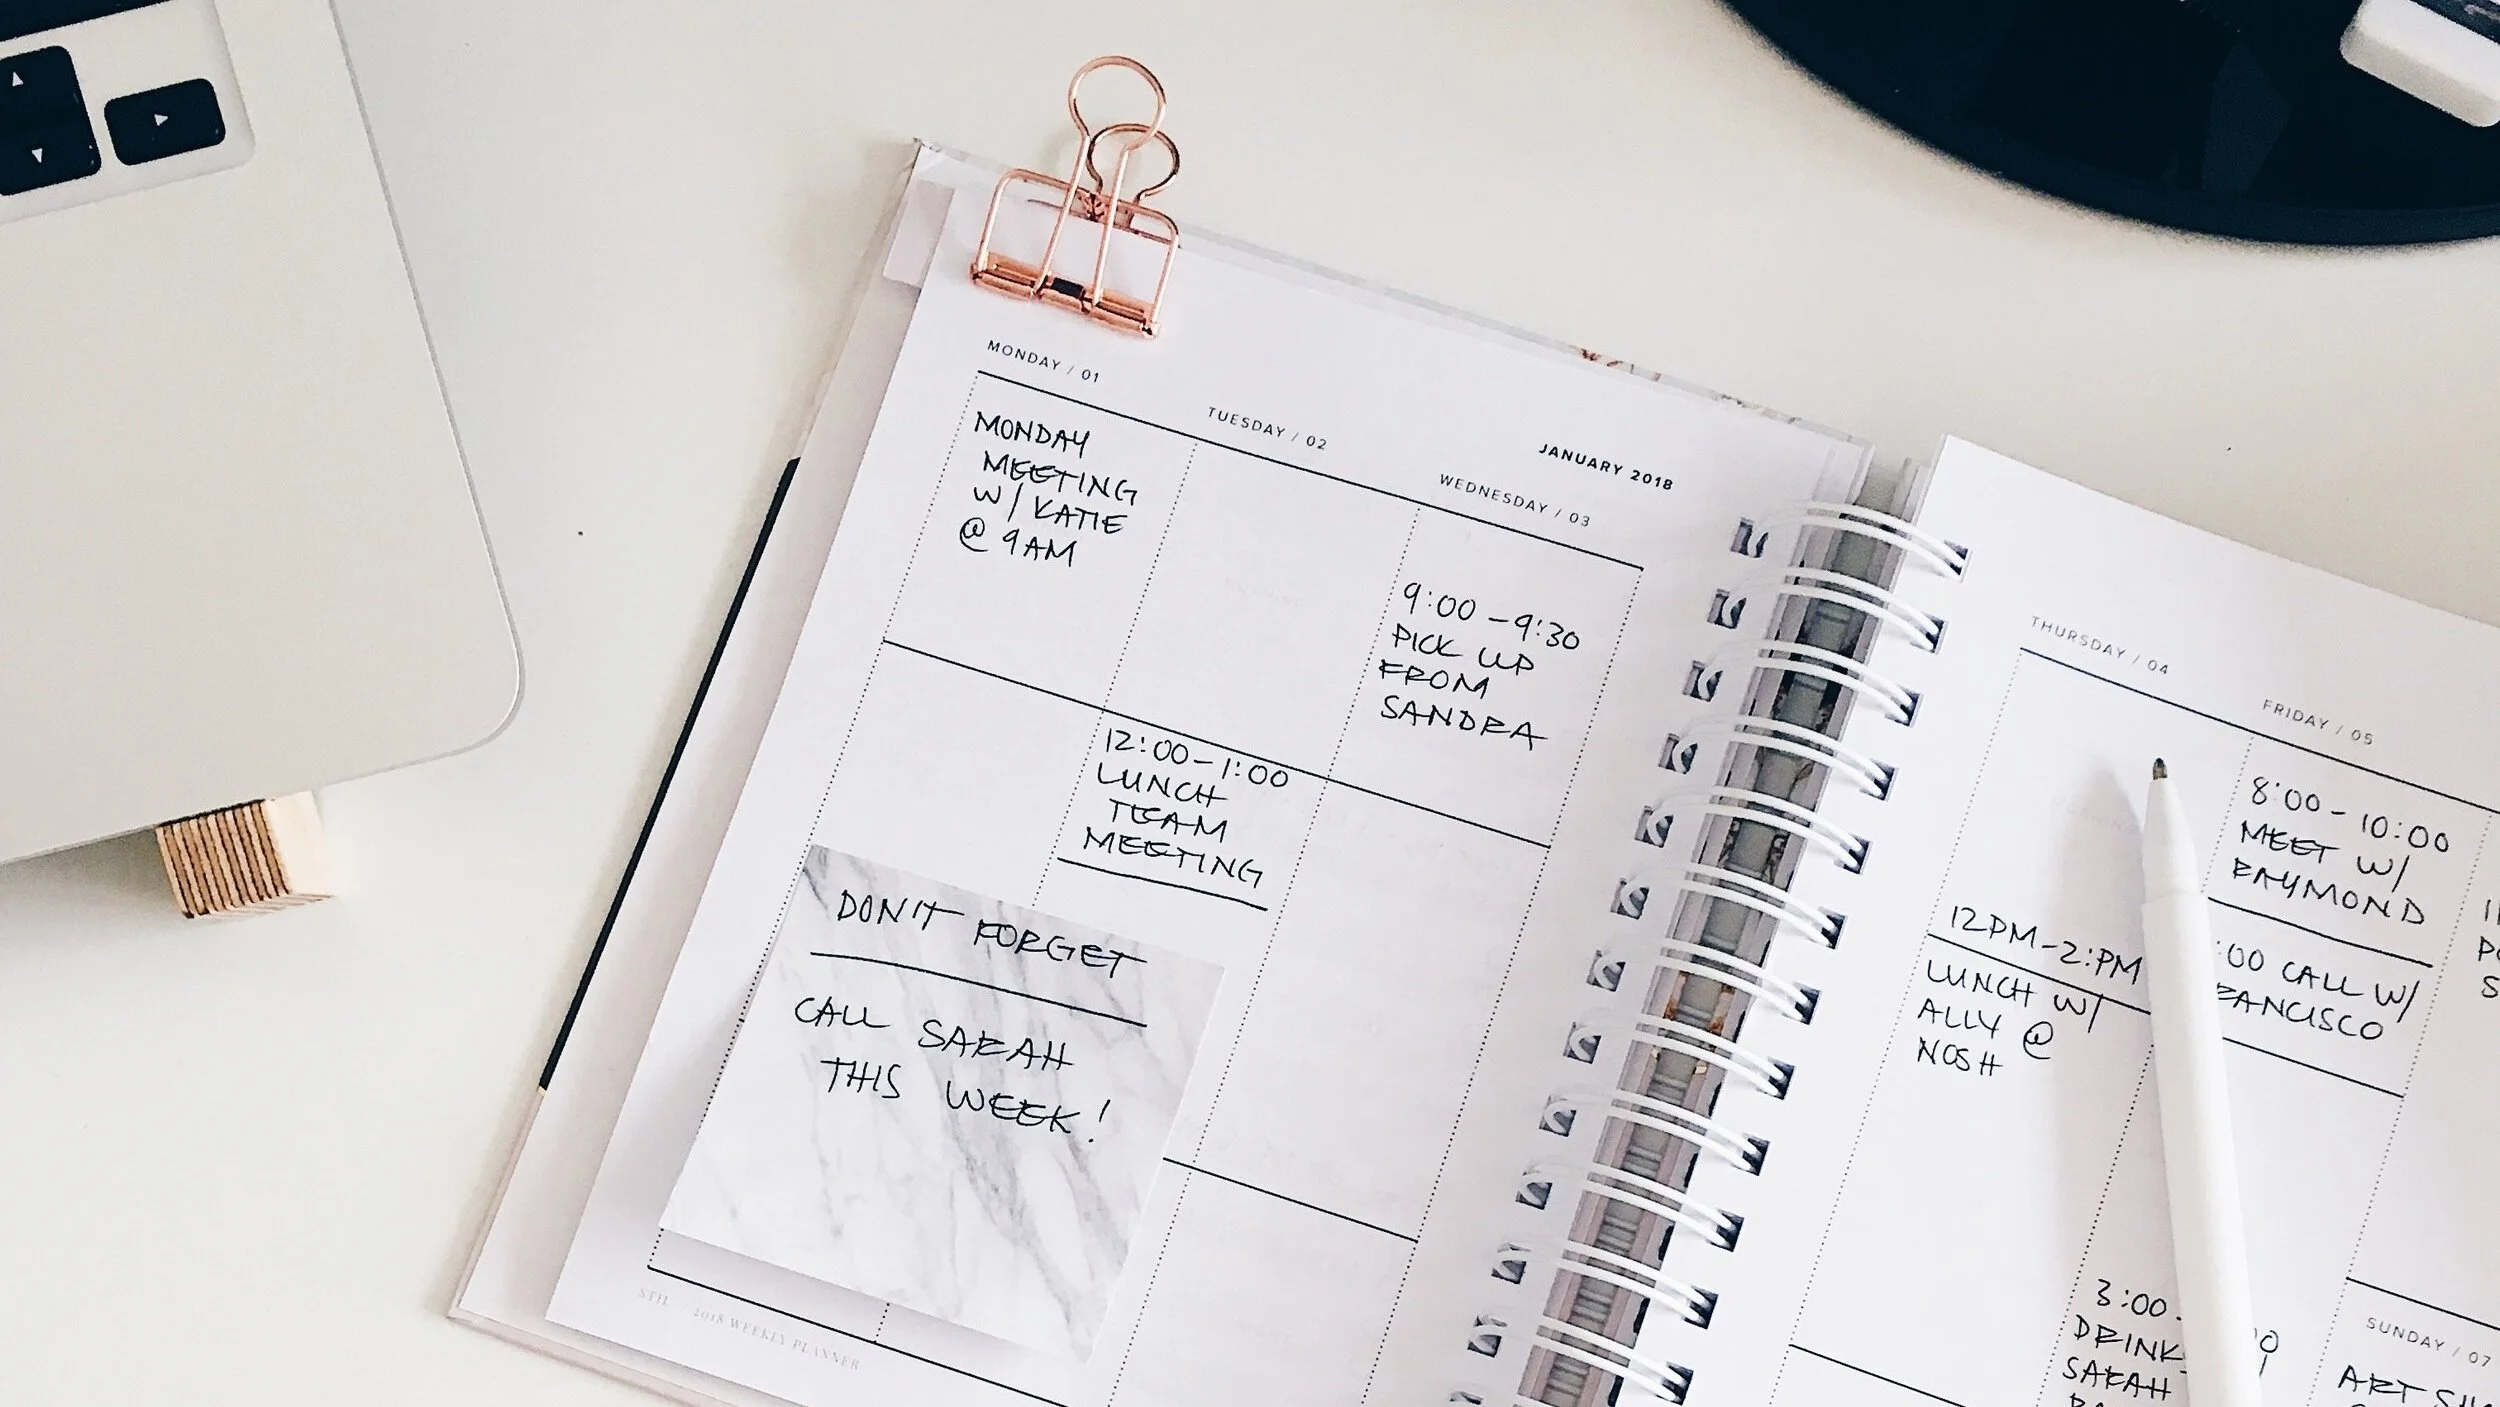 MONDAY / 01
MONDAY
MEETING
W/ KATIE
@ 9AM
TUESDAY / 02
12:00-1:00
LUNCH
TEAM
MEETING
JANUARY 2018
WEDNESDAY / 03
9:00-9:30
PICK UP
FROM
SANDRA
DON'T FORGET
CALL SARAH
THIS WEEK!
STIL 2018 WEEKLY PLANNER
THURSDAY / 04
12PM-2:PM
LUNCH W/
ALLY @
NOSH
FRIDAY / 05
8:00-10:00
MEET W/
RAYMOND
:00 CALL W/
3:00
SARAH
SUNDAY / 07
ART